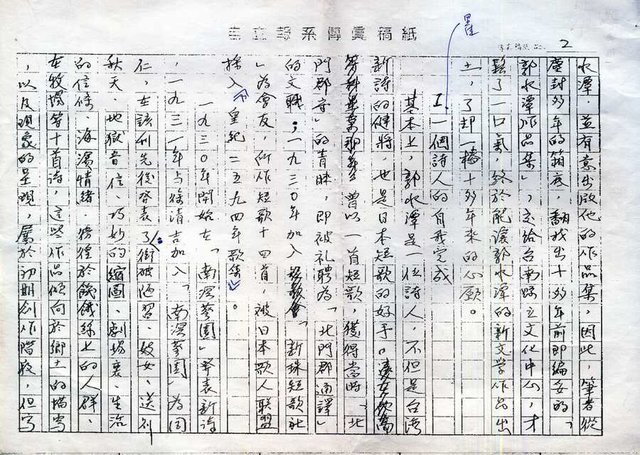 自立報系傳真稿紙
2
水潭，並有意出版他的作品集，因此，筆者從
塵封多年的箱底，翻找出十多年前即編妥的「
郭水潭作品集」，交給台南縣立文化中心，才
鬆了一口氣，終於脫渡郭水潭的新文學作品出
土，了却一樁十多年來的心願。
I.一個詩人的自我完成
基本上，郭水潭是一位詩人，不但是台灣
新詩的健將，也是日本短歌的好手。
曾以一首短歌，獲得當時「北
門郡守」的青睞，即被禮聘為「北門郡通譯」
的文職；一九三〇年加入「新珠短歌社
」為會友，所作短歌十四首，被日本歌人聯盟
採入《皇紀二五九四年歌集》。
一九三〇年開始在「南溟藝園」發表新詩
，一九三一年與徐清吉加入「南溟藝園」為同
仁，在該刊先後發表了《街被陋習、妓女、送別
秋天、地獄音信、巧妙的縮圖、劇場裏、生活
的信條、海濱情緒、徬徨於饑餓線上的人群、
在牧場等十首詩，這些作品傾向於鄉土的描寫
，以及現象的呈現，屬於初期創作階段，但字